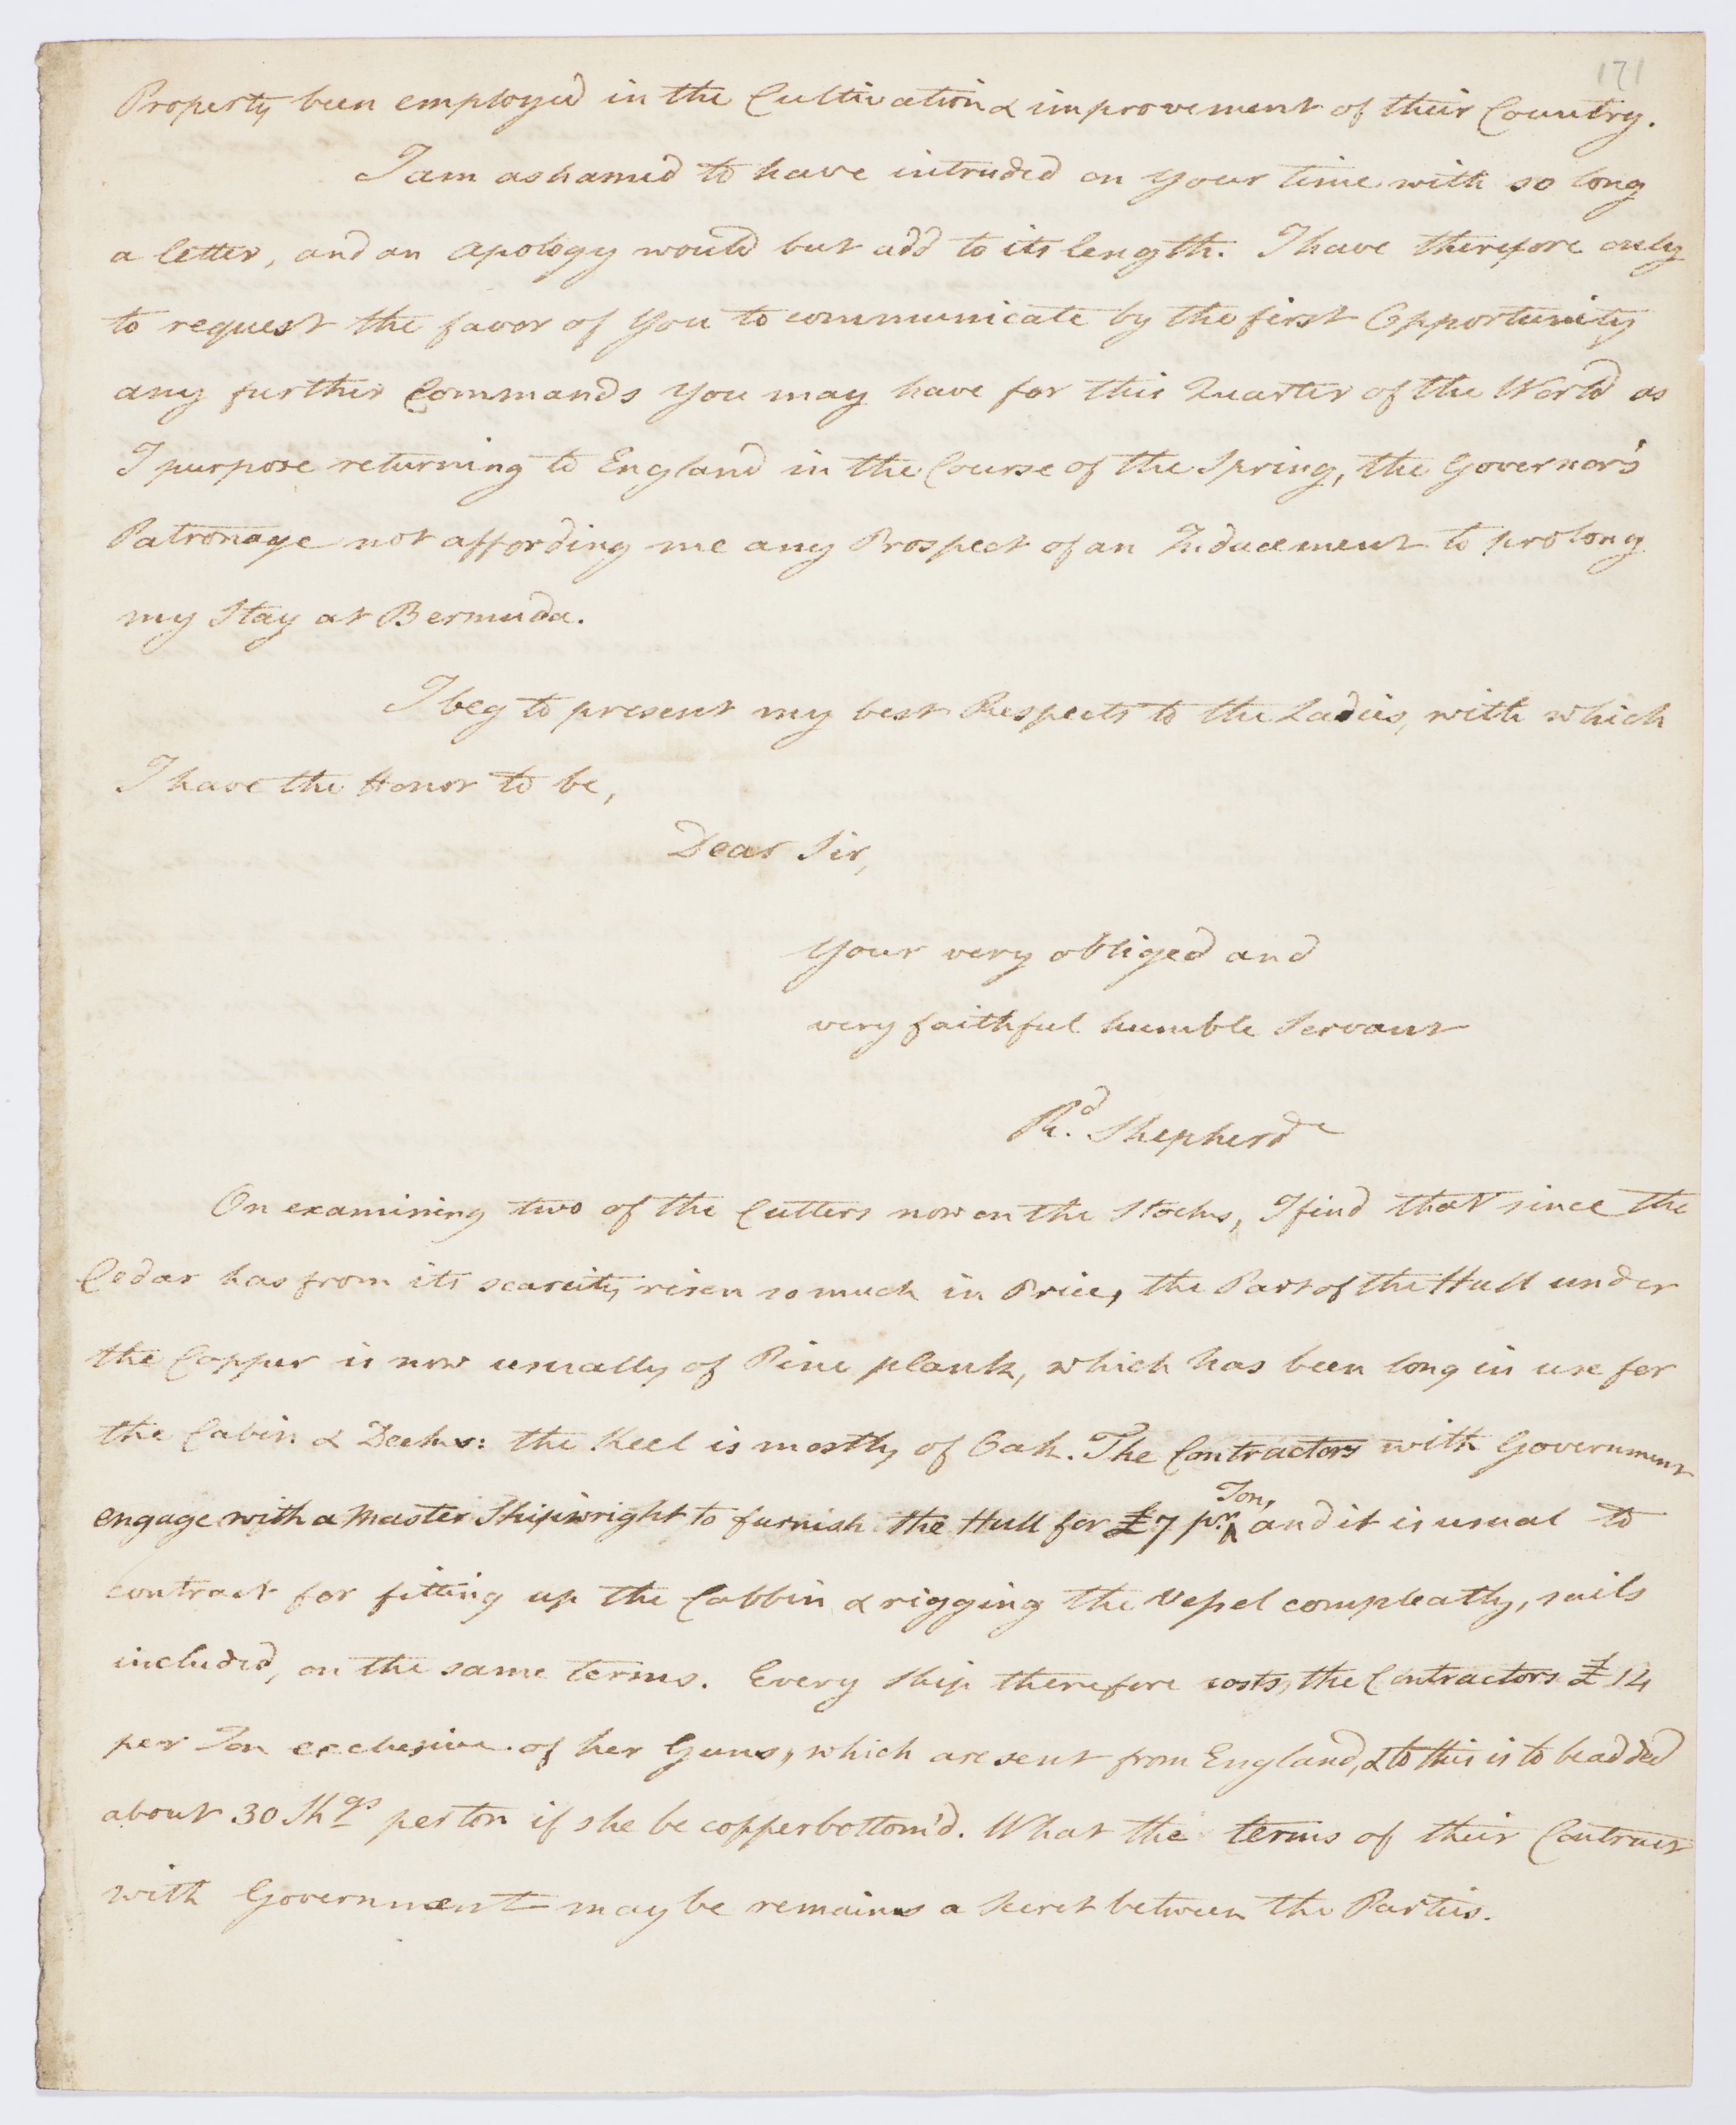 171
Property been employed in the Cultivation & improvement of their Country.
I am ashamed to have intruded on your time with so long
a letter, and an apology would but add to its length. I have therefore only
to request the favor of you to communicate by the first Opportunity
any further Commands you may have for this Quarter of the World as
I purpose returning to England in the Course of the Spring, the Governor's
Patronage not affording me any Prospect of an Inducement to prolong
my Stay at Bermuda.
I beg to present my best Respects to the Ladies, with which
I have the Honor to be,
Dear Sir,
Your very obliged and
very faithful humble Servant
Rd. Shepherd
On examining two of the Cutters now on the Stocks, I find that since the
Cedar has from its scarcity risen so much in Price, the Part of the Hull under
the Copper is now usually of Pine plank, which has been long in use for
the Cabin & Decks: the Keel is mostly of Oak. The Contractors with Government
engage with a Master Shipwright to furnish the Hull for £7 pr. Ton, and it is usual to
contract for fitting up the Cabbin & rigging the Vessel compleatly, sails
included, on the same terms. Every Ship therefore costs the Contractors £14
per Ton exclusive of her Guns, which are sent from England, & to this is to be added
about 30 Shgs per ton if she be copperbottom'd. What the terms of their Contract
with Government may be remains a Secret between the Parties.